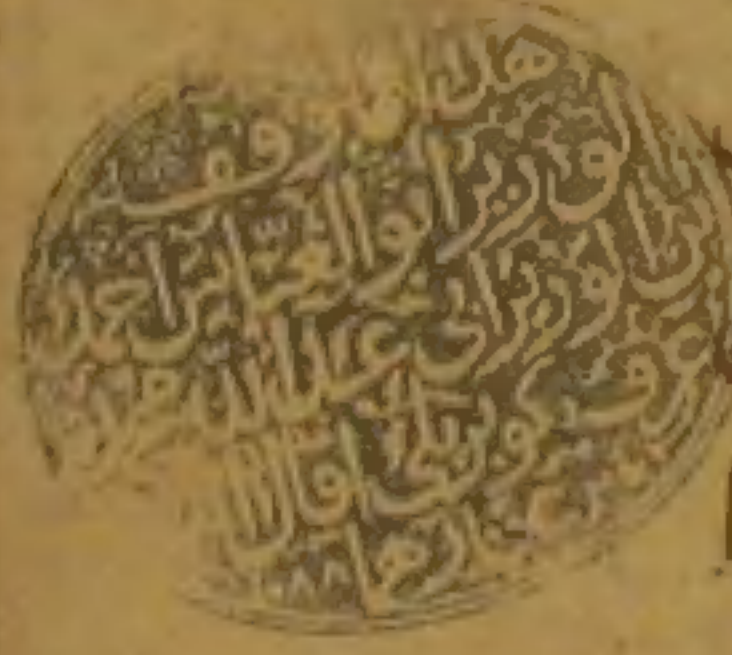 هذا ما وقف
الوزير ابو العباس احمد
بن الوزير ابي عبد الله محمد
عرف بكوبريلي اقال الله
عثارهما
٨٨